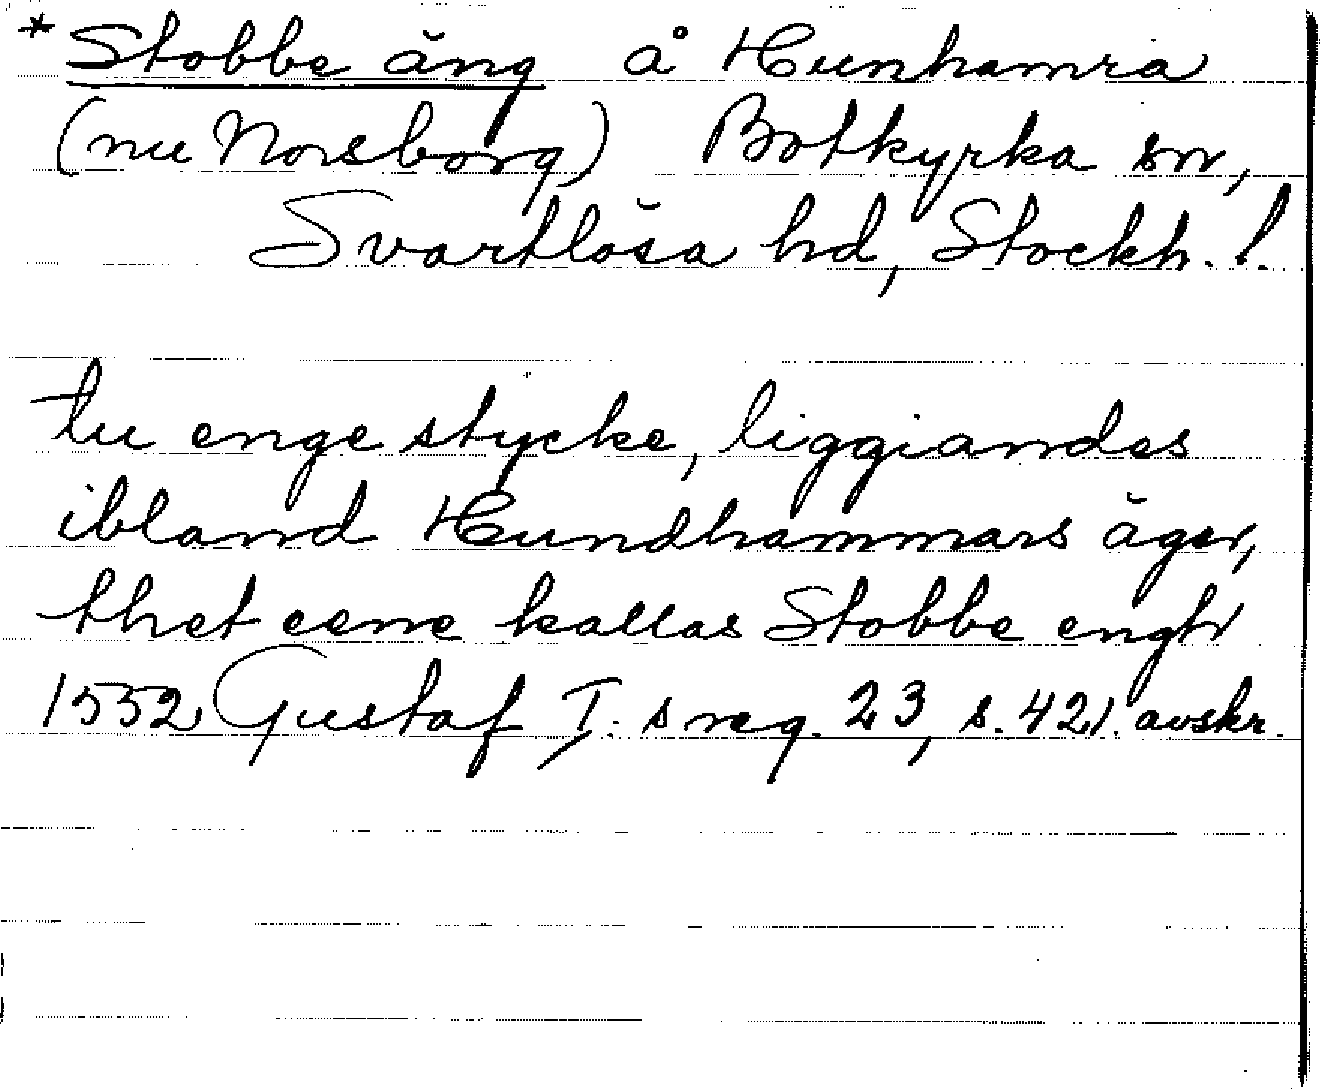 *Stobbe äng å Hunhamra
(nu Norsborg) Botkyrka sn,
Svartlösa hd, Stockh. l.
tu enge stycke, liggiandes
ibland Hundhammars äger,
thet eene kallas Stobbe engh
1552 Gustaf I. s reg. 23, s. 421. avskr.